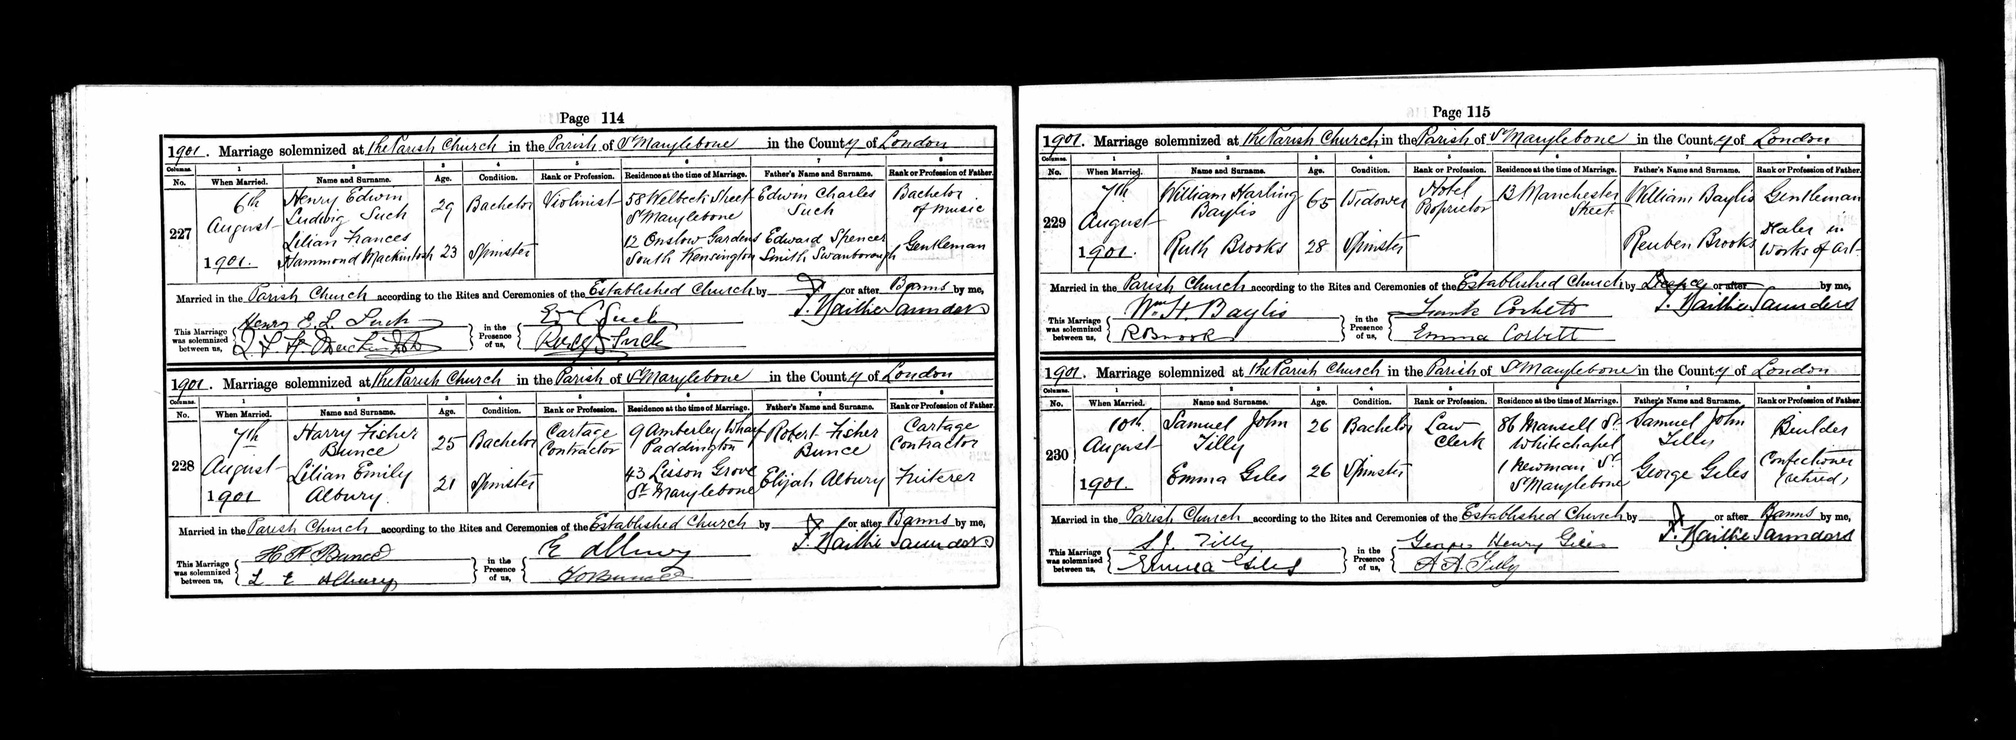 Page 114
1901. Marriage solemnized at the Parish Church in the Parish of St Marylebone in the County of London
Columns. 1 2 3 4 5 6 7 8
No. When Married. Name and Surname. Age. Condition. Rank or Profession. Residence at the time of Marriage. Father's Name and Surname. Rank or Profession of Father.
227 6th August 1901. Henry Edwin Ludwig Such 29 Bachelor Violinist 58 Welbeck Street St Marylebone Edwin Charles Such Bachelor of Music
Lilian Frances Hammond Mackintosh 23 Spinster 12 Onslow Gardens South Kensington Edward Spencer Smith Swanborough Gentleman
Married in the Parish Church according to the Rites and Ceremonies of the Established Church by or after Banns by me,
This Marriage was solemnized between us, Henry E. L. Such in the Presence of us, Such
Such
1901. Marriage solemnized at the Parish Church in the Parish of St Marylebone in the County of London
Columns. 1 2 3 4 5 6 7 8
No. When Married. Name and Surname. Age. Condition. Rank or Profession. Residence at the time of Marriage. Father's Name and Surname. Rank or Profession of Father.
228 7th August 1901 Harry Fisher Bunce 25 Bachelor Cartage Contractor 9 Amberley Wharf Paddington Robert Fisher Bunce Cartage Contractor
Lilian Emily Albury. 21 Spinster 43 Lisson Grove St Marylebone Elijah Albury Fruiterer
Married in the Parish Church according to the Rites and Ceremonies of the Established Church by or after Banns by me,
This Marriage was solemnized between us, H F Bunce in the Presence of us, E Albury
L E Albury
Page 115
1901. Marriage solemnized at the Parish Church in the Parish of St Marylebone in the County of London
Columns. 1 2 3 4 5 6 7 8
No. When Married. Name and Surname. Age. Condition. Rank or Profession. Residence at the time of Marriage. Father's Name and Surname. Rank or Profession of Father.
229 7th August 1901. William Harling Baylis 65 Widower Hotel Proprietor 13 Manchester Street William Baylis Gentleman
Ruth Brooks 28 Spinster Reuben Brooks in Works of Art
Married in the Parish Church according to the Rites and Ceremonies of the Established Church by or after by me,
This Marriage was solemnized between us, Wm H Baylis in the Presence of us, Frank Corbett
R Brooks Emma Corbett
1901. Marriage solemnized at the Parish Church in the Parish of St Marylebone in the County of London
Columns. 1 2 3 4 5 6 7 8
No. When Married. Name and Surname. Age. Condition. Rank or Profession. Residence at the time of Marriage. Father's Name and Surname. Rank or Profession of Father.
230 10th. August 1901. Samuel John Tilly 26 Bachelor Law Clerk 86 Mansell St. Whitechapel Samuel John Tilly Builder
Emma Giles 26 Spinster 1 Newman St. St Marylebone George Giles Confectioner (retired)
Married in the Parish Church according to the Rites and Ceremonies of the Established Church by or after Banns by me,
This Marriage was solemnized between us, S J. Tilly in the Presence of us, George Henry Giles
Emma Giles A A Tilly